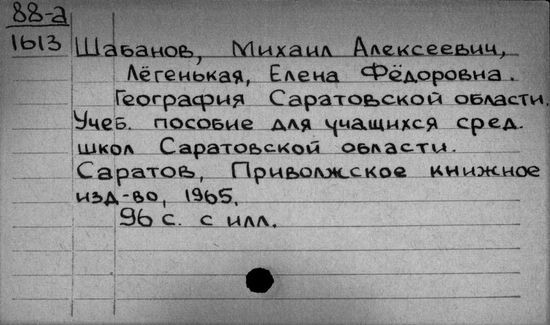 88-а
1613
Шабанов, Михаил Алексеевич,
Лёгенькая, Елена Фёдоровна.
География Саратовской области.
Учеб. пособие для учащихся сред.
школ Саратовской области.
Саратов, Приволжское книжное
изд-во, 1965.
96 с. с илл.